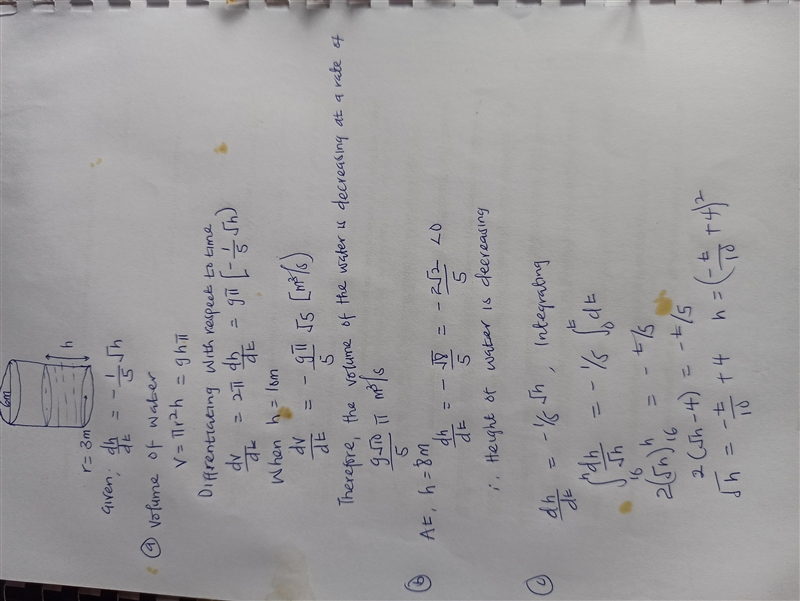 6m
h
r = 3m
Given, dh/dt = -1/5 √h
(a) Volume of water
V = πr²h = 9hπ
Differentiating with respect to time
dV/dt = 2π dh/dt = 9π [-1/5 √h)
When h = 10m
dV/dt = -9π/5 √5 [m³/s)
Therefore, the volume of the water is decreasing at a rate of
9√10/5 π m³/s
(b) At, h = 8m
dh/dt = -√8/5 = -2√2/5 < 0
∴ Height of water is decreasing
(c) dh/dt = -1/5 √h, integrating
∫₁₆ʰ dh/√h = -1/5 ∫₀ᵗ dt
2(√h)₁₆ʰ = -t/5
2(√h - 4) = -t/5
√h = -t/10 + 4 h = (-t/10 + 4)²